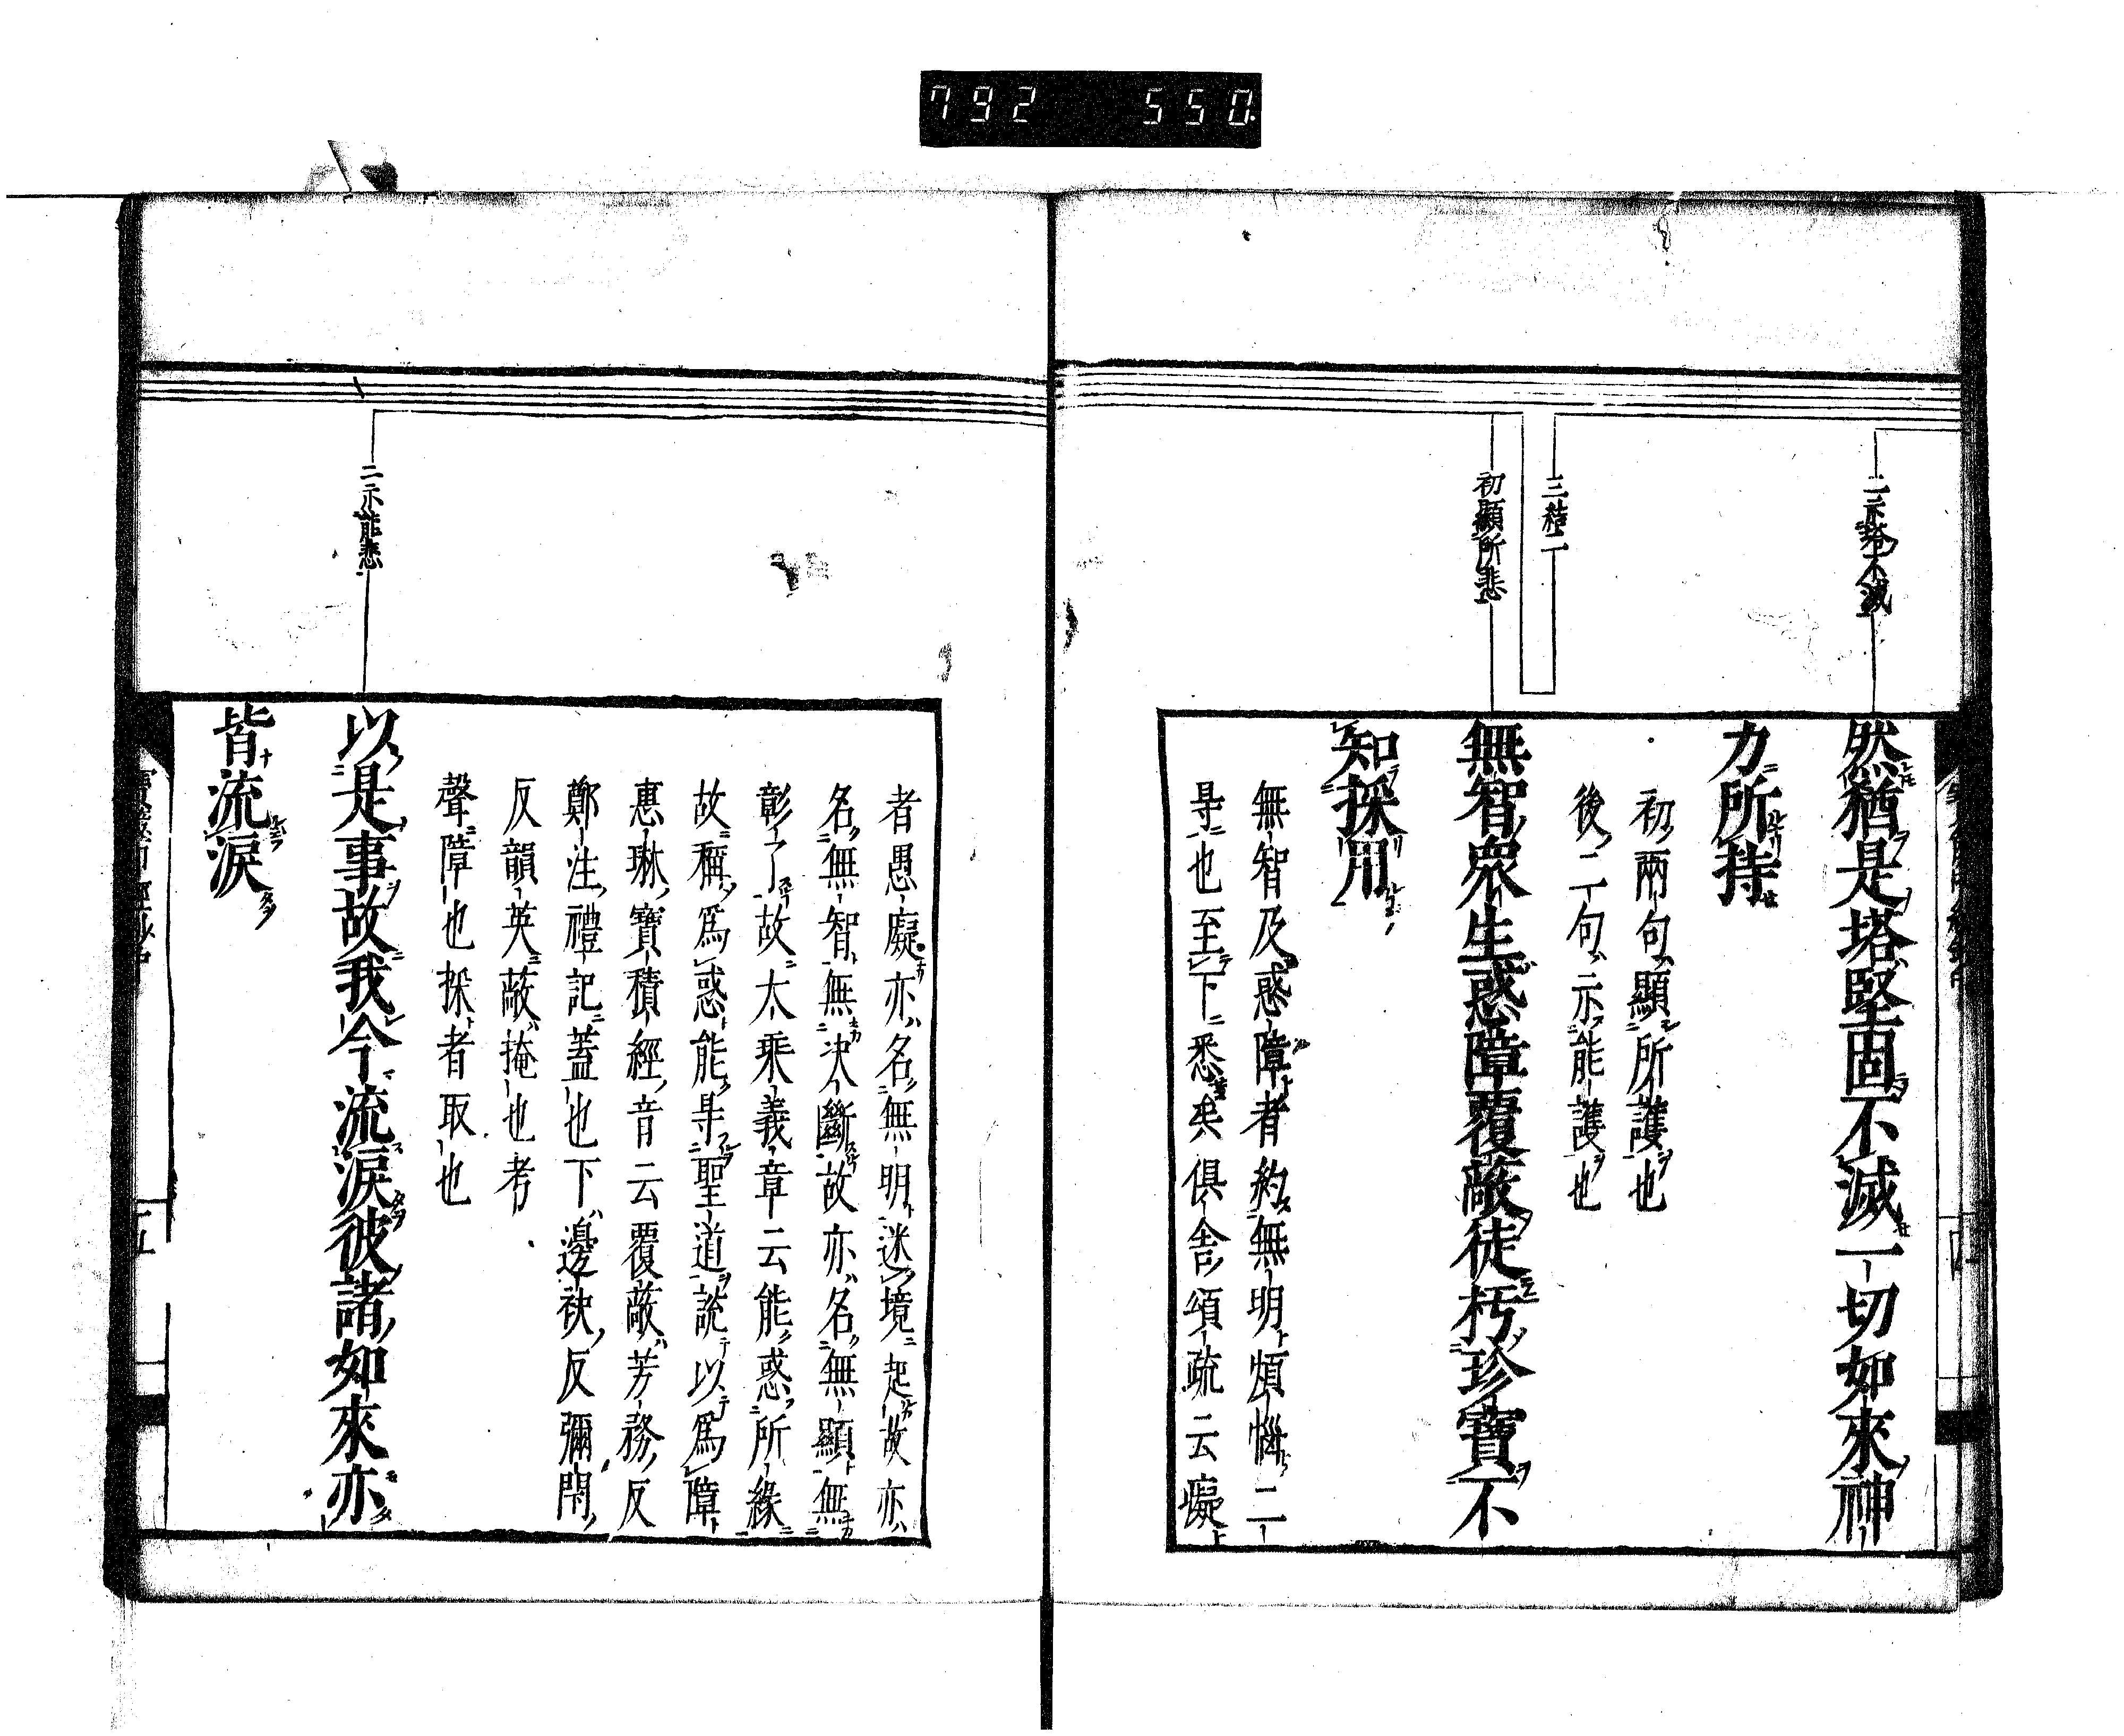 792 550
二示塔不滅
然猶是塔堅固不滅一切如來神
力所持
初兩句顯所護也
後二句示能護也
三結二
初顯所悲
無智衆生惑障覆蔽徒朽珍寶不
知採用
無智及惑障者約無明煩惱二
㝵也至下悉矣俱舍頌疏云癡
者愚癡亦名無明迷境起故亦
名無智無決斷故亦名無顯無
彰了故大乘義章云能惑所緣
故稱爲惑能㝵聖道説以爲障
惠琳寶積經音云覆蔽芳務反
鄭注禮記蓋也下邊袂反彌閇
反韻英蔽掩也考
聲障也採者取也
二示能悲
以是事故我今流淚彼諸如來亦
皆流淚